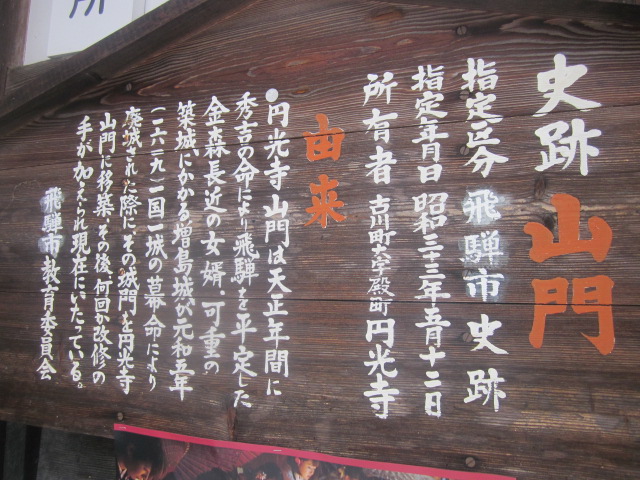 所
史跡 山門
指定区分 飛騨市史跡
指定年月日 昭和三十三年五月十二日
所有者 古川町大字殿町円光寺
由来
●円光寺山門は天正年間に
秀吉の命により飛騨を平定した
金森長近の女婿・可重の
築城にかかる増島城が元和五年
(一六一九)一国一城の幕命により
廃城された際にその城門を円光寺
山門に移築 その後何回か改修の
手が加えられ現在にいたっている。
飛騨市教育委員会